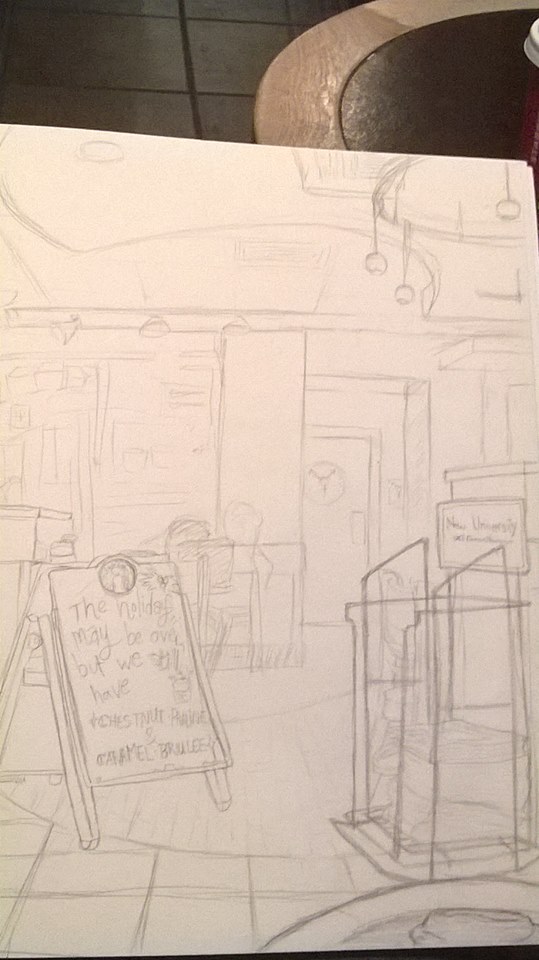 The holiday
may be over
but we still
have
*CHESTNUT PRALINE
&
CARAMEL BRULEE
New University